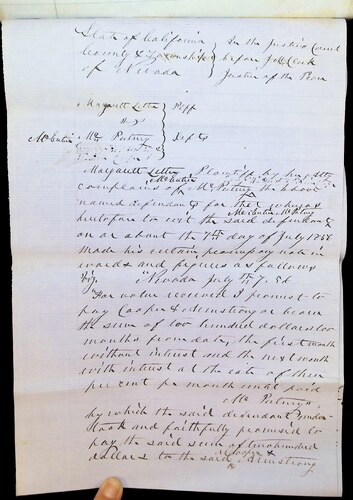 State of California } In the Justice Court
County & Township } before J H Clark
of Nevada } Justice of the Peace
Margarett Letter } Plff
vs
McCutin Mc Putney } Defts
Margarett Letter Plaintiff by her atty
complains of McCutin & Mc Putney the above
named defendants for that whereas
heretofore to wit the said defendants McCutin & Mc Putney
on or about the 7th day of July 1858
made his certain promissory note in
words and figures as follows
viz. "Nevada July 7th 58
"For value received I promise to
pay Cooper & Armstrong or bearer
the sum of two hundred dollars two
months from date, the first month
without interest and the next month
with interest at the rate of three
per cent per month until paid
Mc Putney"
by which the said defendant under-
took and faithfully promised to
pay the said sum of two hundred
dollars to the said Cooper & Armstrong